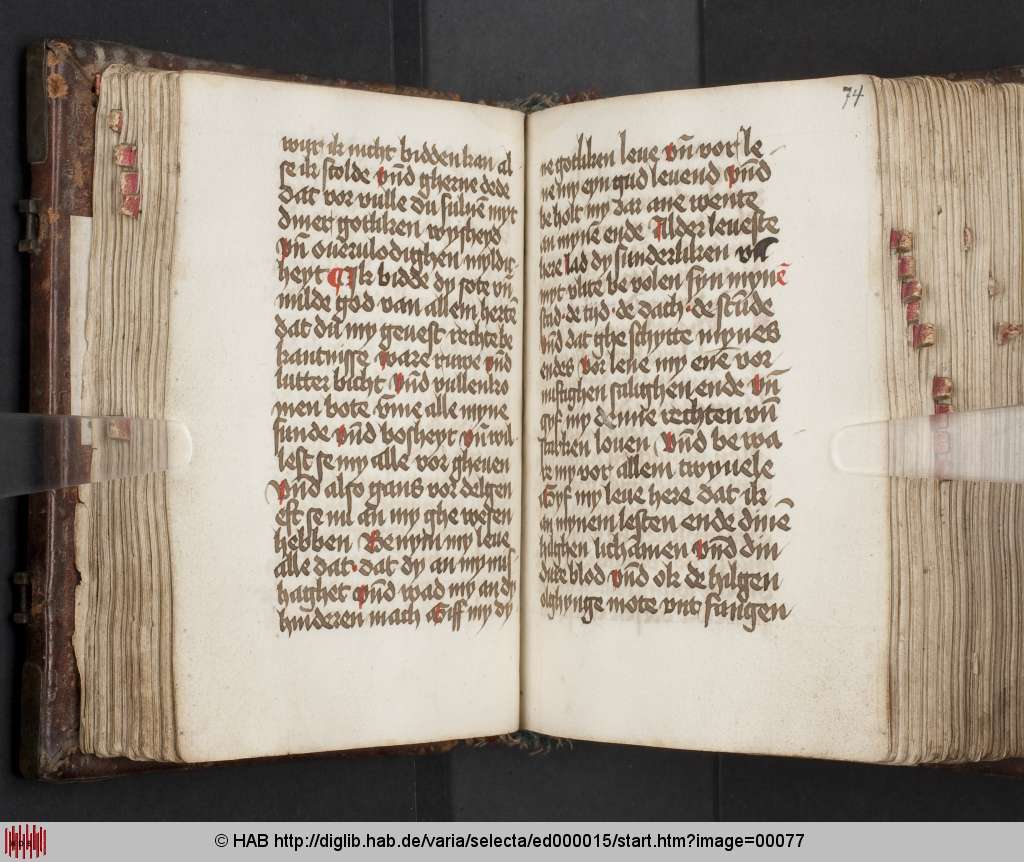 wur ik nicht bidden kan al
se ik scolde vn̄d gherne dede
dat vor vulle du suluē myt
diner gotliken wysheyd
vn̄ ouervlodighen myldic
heyt Ik bidde dy sote vn̄
milde god van allem hertē
dat du my geuest rechte be
kantnisse ware ruwe vn̄d
lutter bicht vn̄d vullenko
men bote v̄me alle myne
sunde vn̄d bosheyt vn̄ wil
lest se my alle vor gheuen
vn̄d also gans vor delgen
eft se ni an my ghe wesen
hebben Benym my leue
alle dat dat dy an my mis
haghet vn̄d wad my an dy
hinderen mach Giff my dy
74
ne gotliken leue vn̄ vor le
ne my eyn gud leuend vn̄d
be holt my dar ane wente
an mynē ende Alder leueste
here lad dy sunderliken vn̄
myt vlite be volen syn mynē
stad de tyd de dach de stūde
vn̄d dat ghe schycte mynes
endes vor lene my enē vor
nuftighen salighen ende vn̄
gyf my denne rechten vn̄
starken louen vn̄d be wa
re my vor allem twyuele
Gyf my leue here dat ik
an mynem lesten ende dinē
hilghen lichamen vn̄d din
dure blod vn̄d ok de hilgen
olghynge mote vnt fangen
© HAB http://diglib.hab.de/varia/selecta/ed000015/start.htm?image=00077